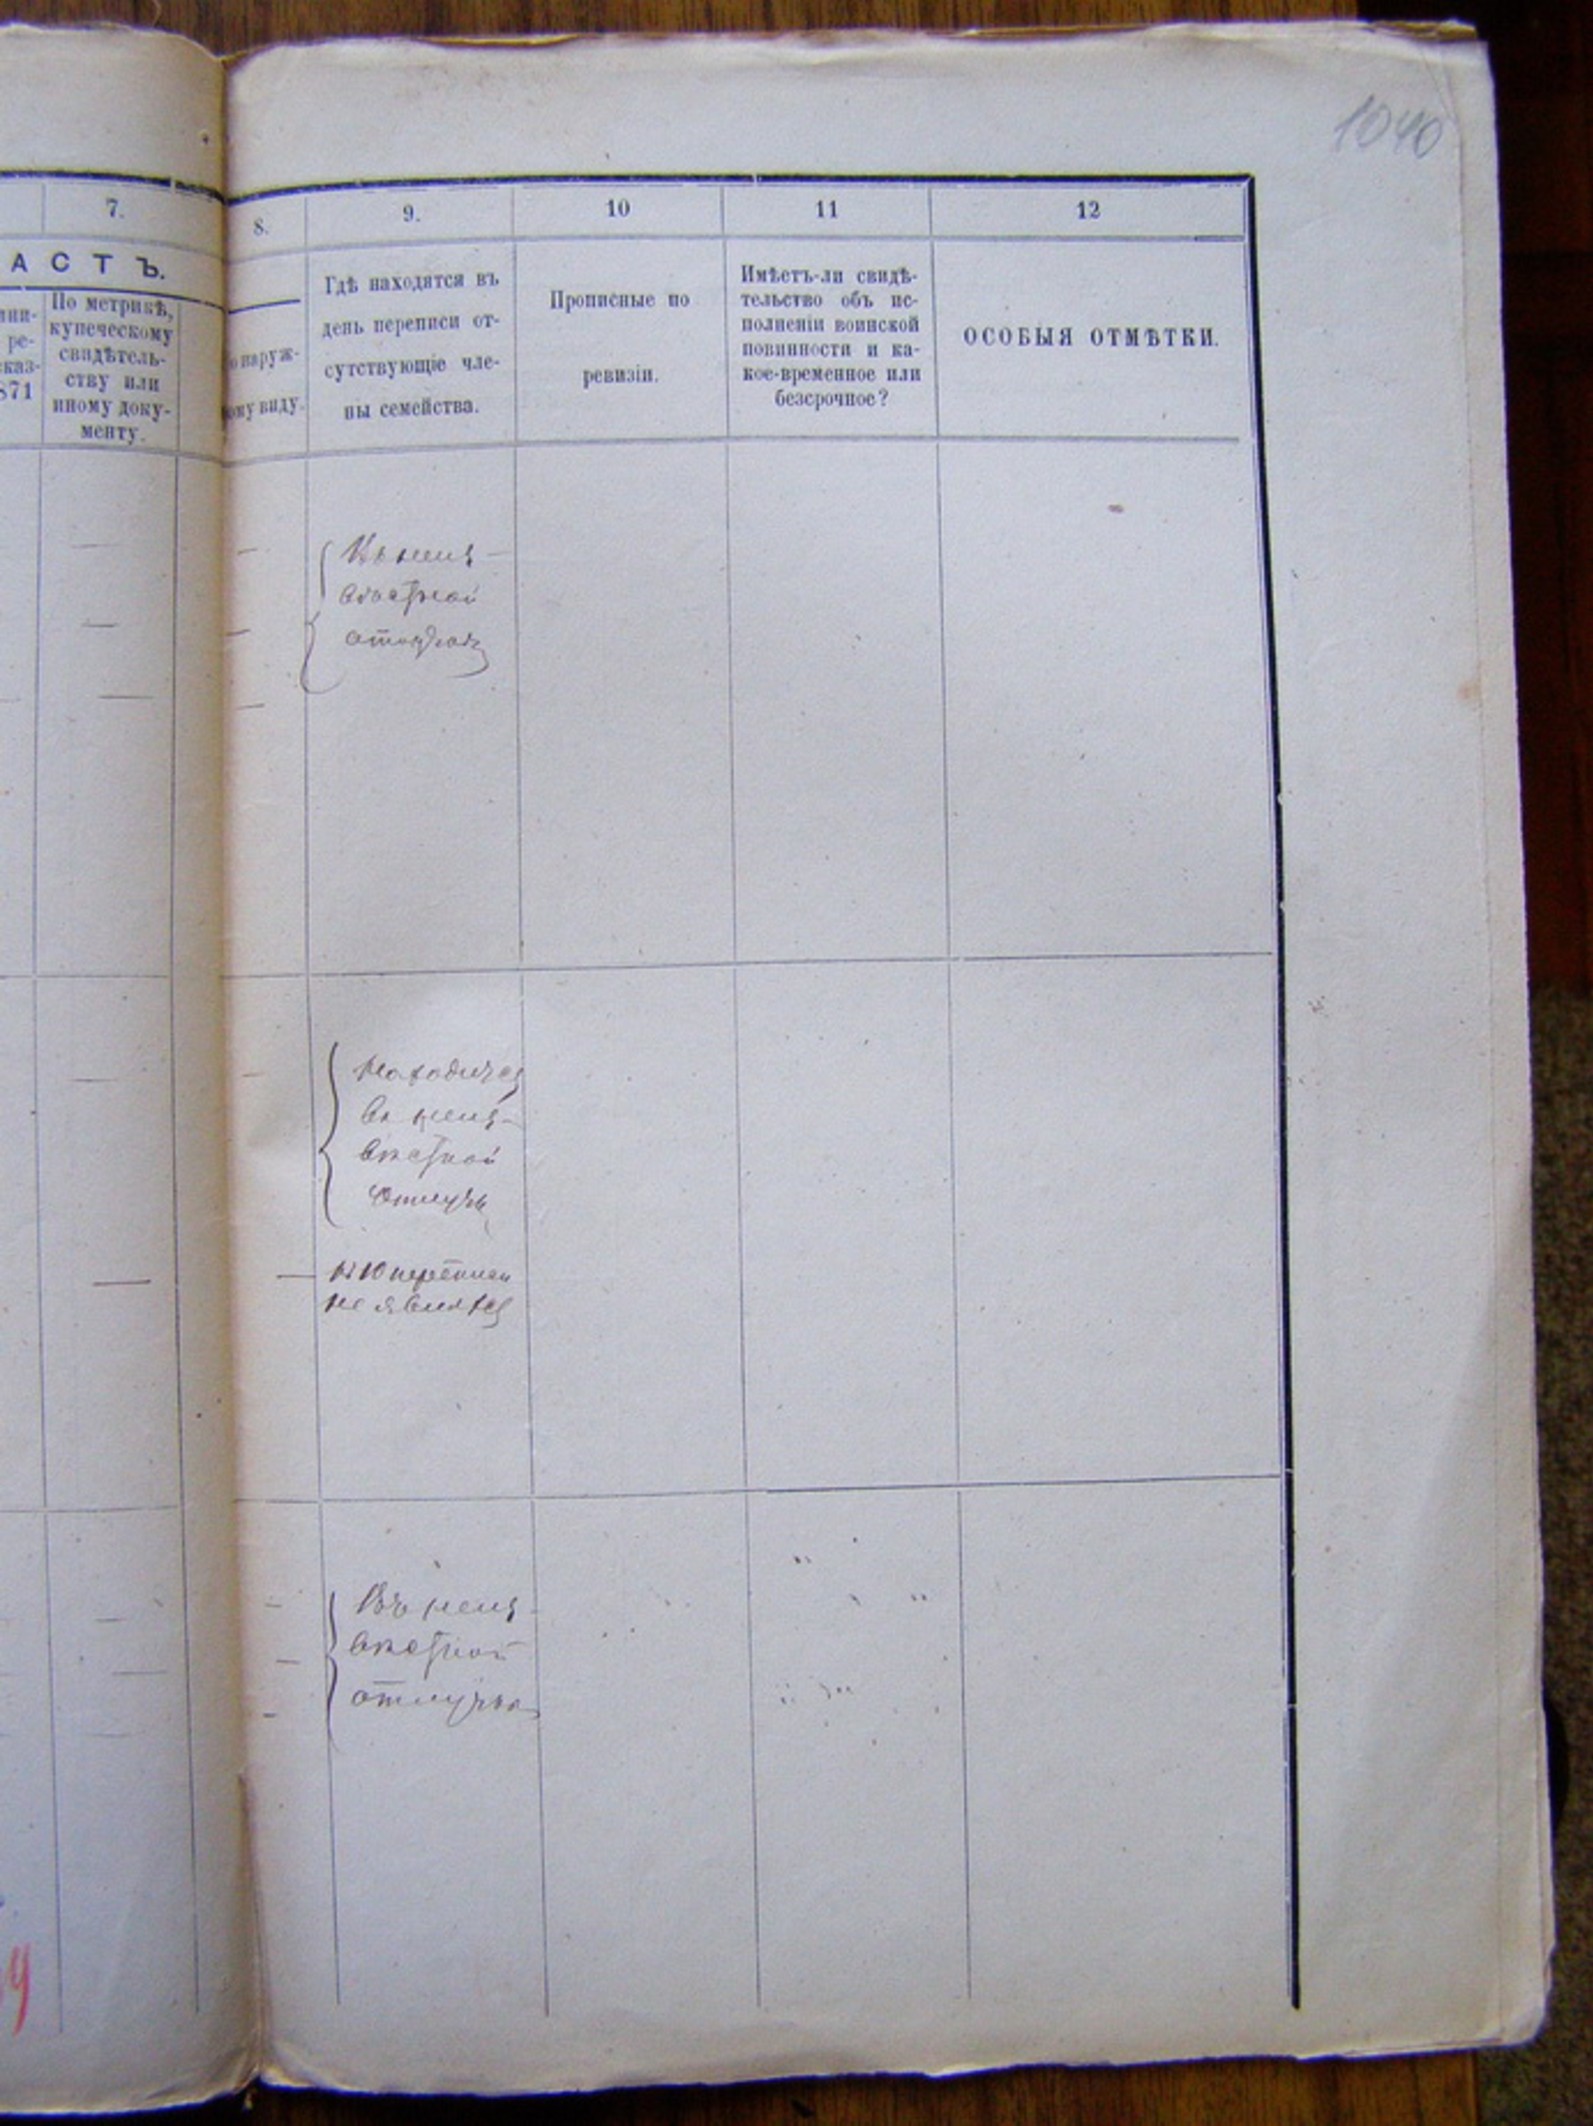 1040
7.
8.
9.
10
11
12
АСТЪ.
ре-
сказ-
871
По метрикѣ,
купеческому
свидѣтель-
ству или
иному доку-
менту.
о наруж-
ному виду.
Гдѣ находятся въ
день переписи от-
сутствующіе чле-
ны семейства.
Прописные по
ревизіи.
Имѣетъ-ли свидѣ-
тельство объ ис-
полненіи воинской
повинности и ка-
кое-временное или
безсрочное?
ОСОБЫЯ ОТМѢТКИ.
Въ неиз-
вѣстной
отлучкѣ
Находится
въ неиз-
вѣстной
отлучкѣ
Къ переписи
не явился
Въ неиз-
вѣстной
отлучкѣ